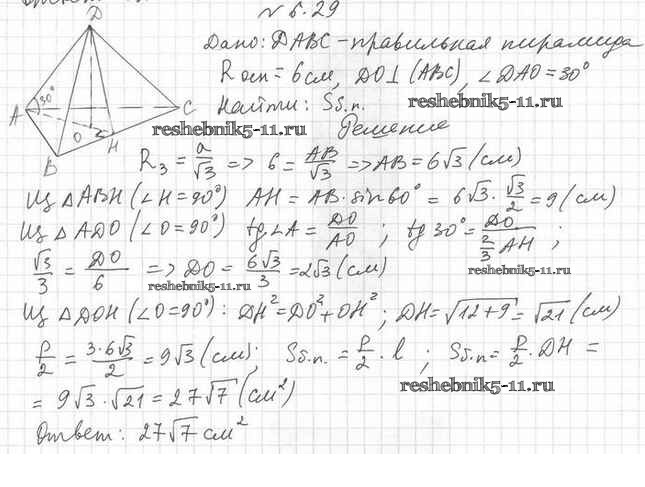 № 6.29
Дано: DABC - правильная пирамида
Rоп = 6 см, DO⊥(ABC), ∠DAO = 30°
Найти: Sб.п.
reshebnik5-11.ru
Решение
D
30°
A
O
B
H
C
R₃ = a/√3 => 6 = AB/√3 => AB = 6√3 (см)
Из △ABH (∠H = 90°) AH = AB · sin 60° = 6√3 · √3/2 = 9 (см)
Из △ADO (∠O = 90°) tg∠A = DO/AO ; tg 30° = DO/(2/3 AH) ;
√3/3 = DO/6 => DO = 6√3/3 = 2√3 (см)
reshebnik5-11.ru
reshebnik5-11.ru
Из △DOH (∠O = 90°) : DH² = DO² + OH² ; DH = √12 + 9 = √21 (см)
P/2 = 3·6√3/2 = 9√3 (см); Sб.п. = P/2 · l ; Sб.п. = P/2 · DH =
reshebnik5-11.ru
= 9√3 · √21 = 27√7 (см²)
Ответ: 27√7 см²